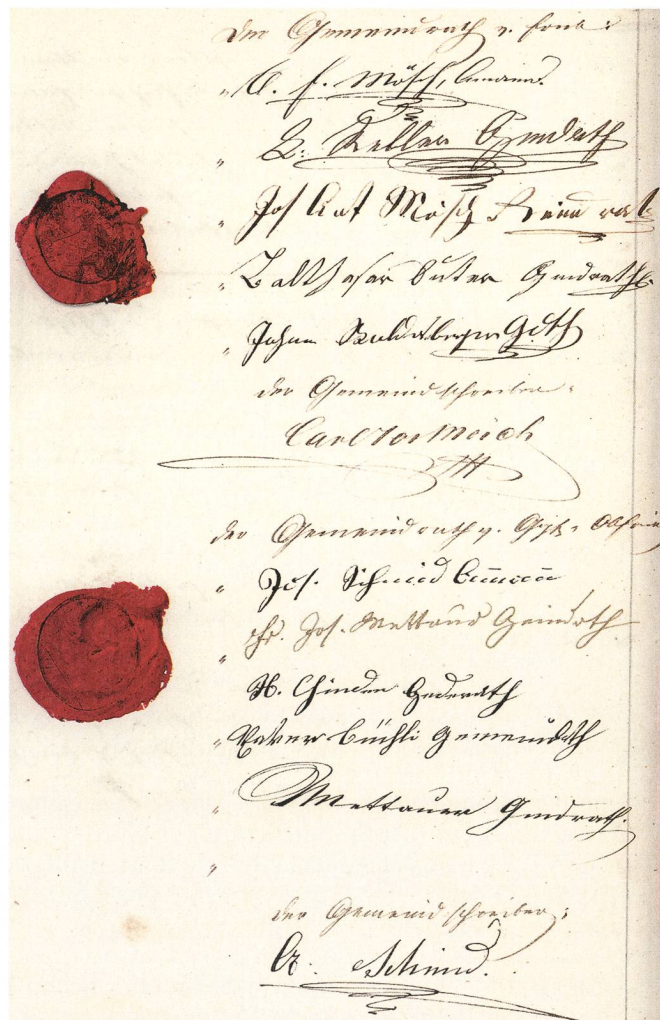 Der Gemeindrath v. Frick:
" A. F. Mösch, Ammann.
" B: Keller Gmdrath
" Jos Ant Mösch Gmdrath
" Balthasar Suter Gmdrath
" Johann Gdth
der Gemeindschreiber:
Carl Jos Mösch
der Gemeindrath v. Gipf-Oberfrick
" Jos. Schmid Ammann
" Jos. Mettauer Gmdrath
Gmdrath
" Xaver Büchli Gemeindrath
" Mettauer Gmdrath.
"
der Gemeindschreiber:
A. Schmid.